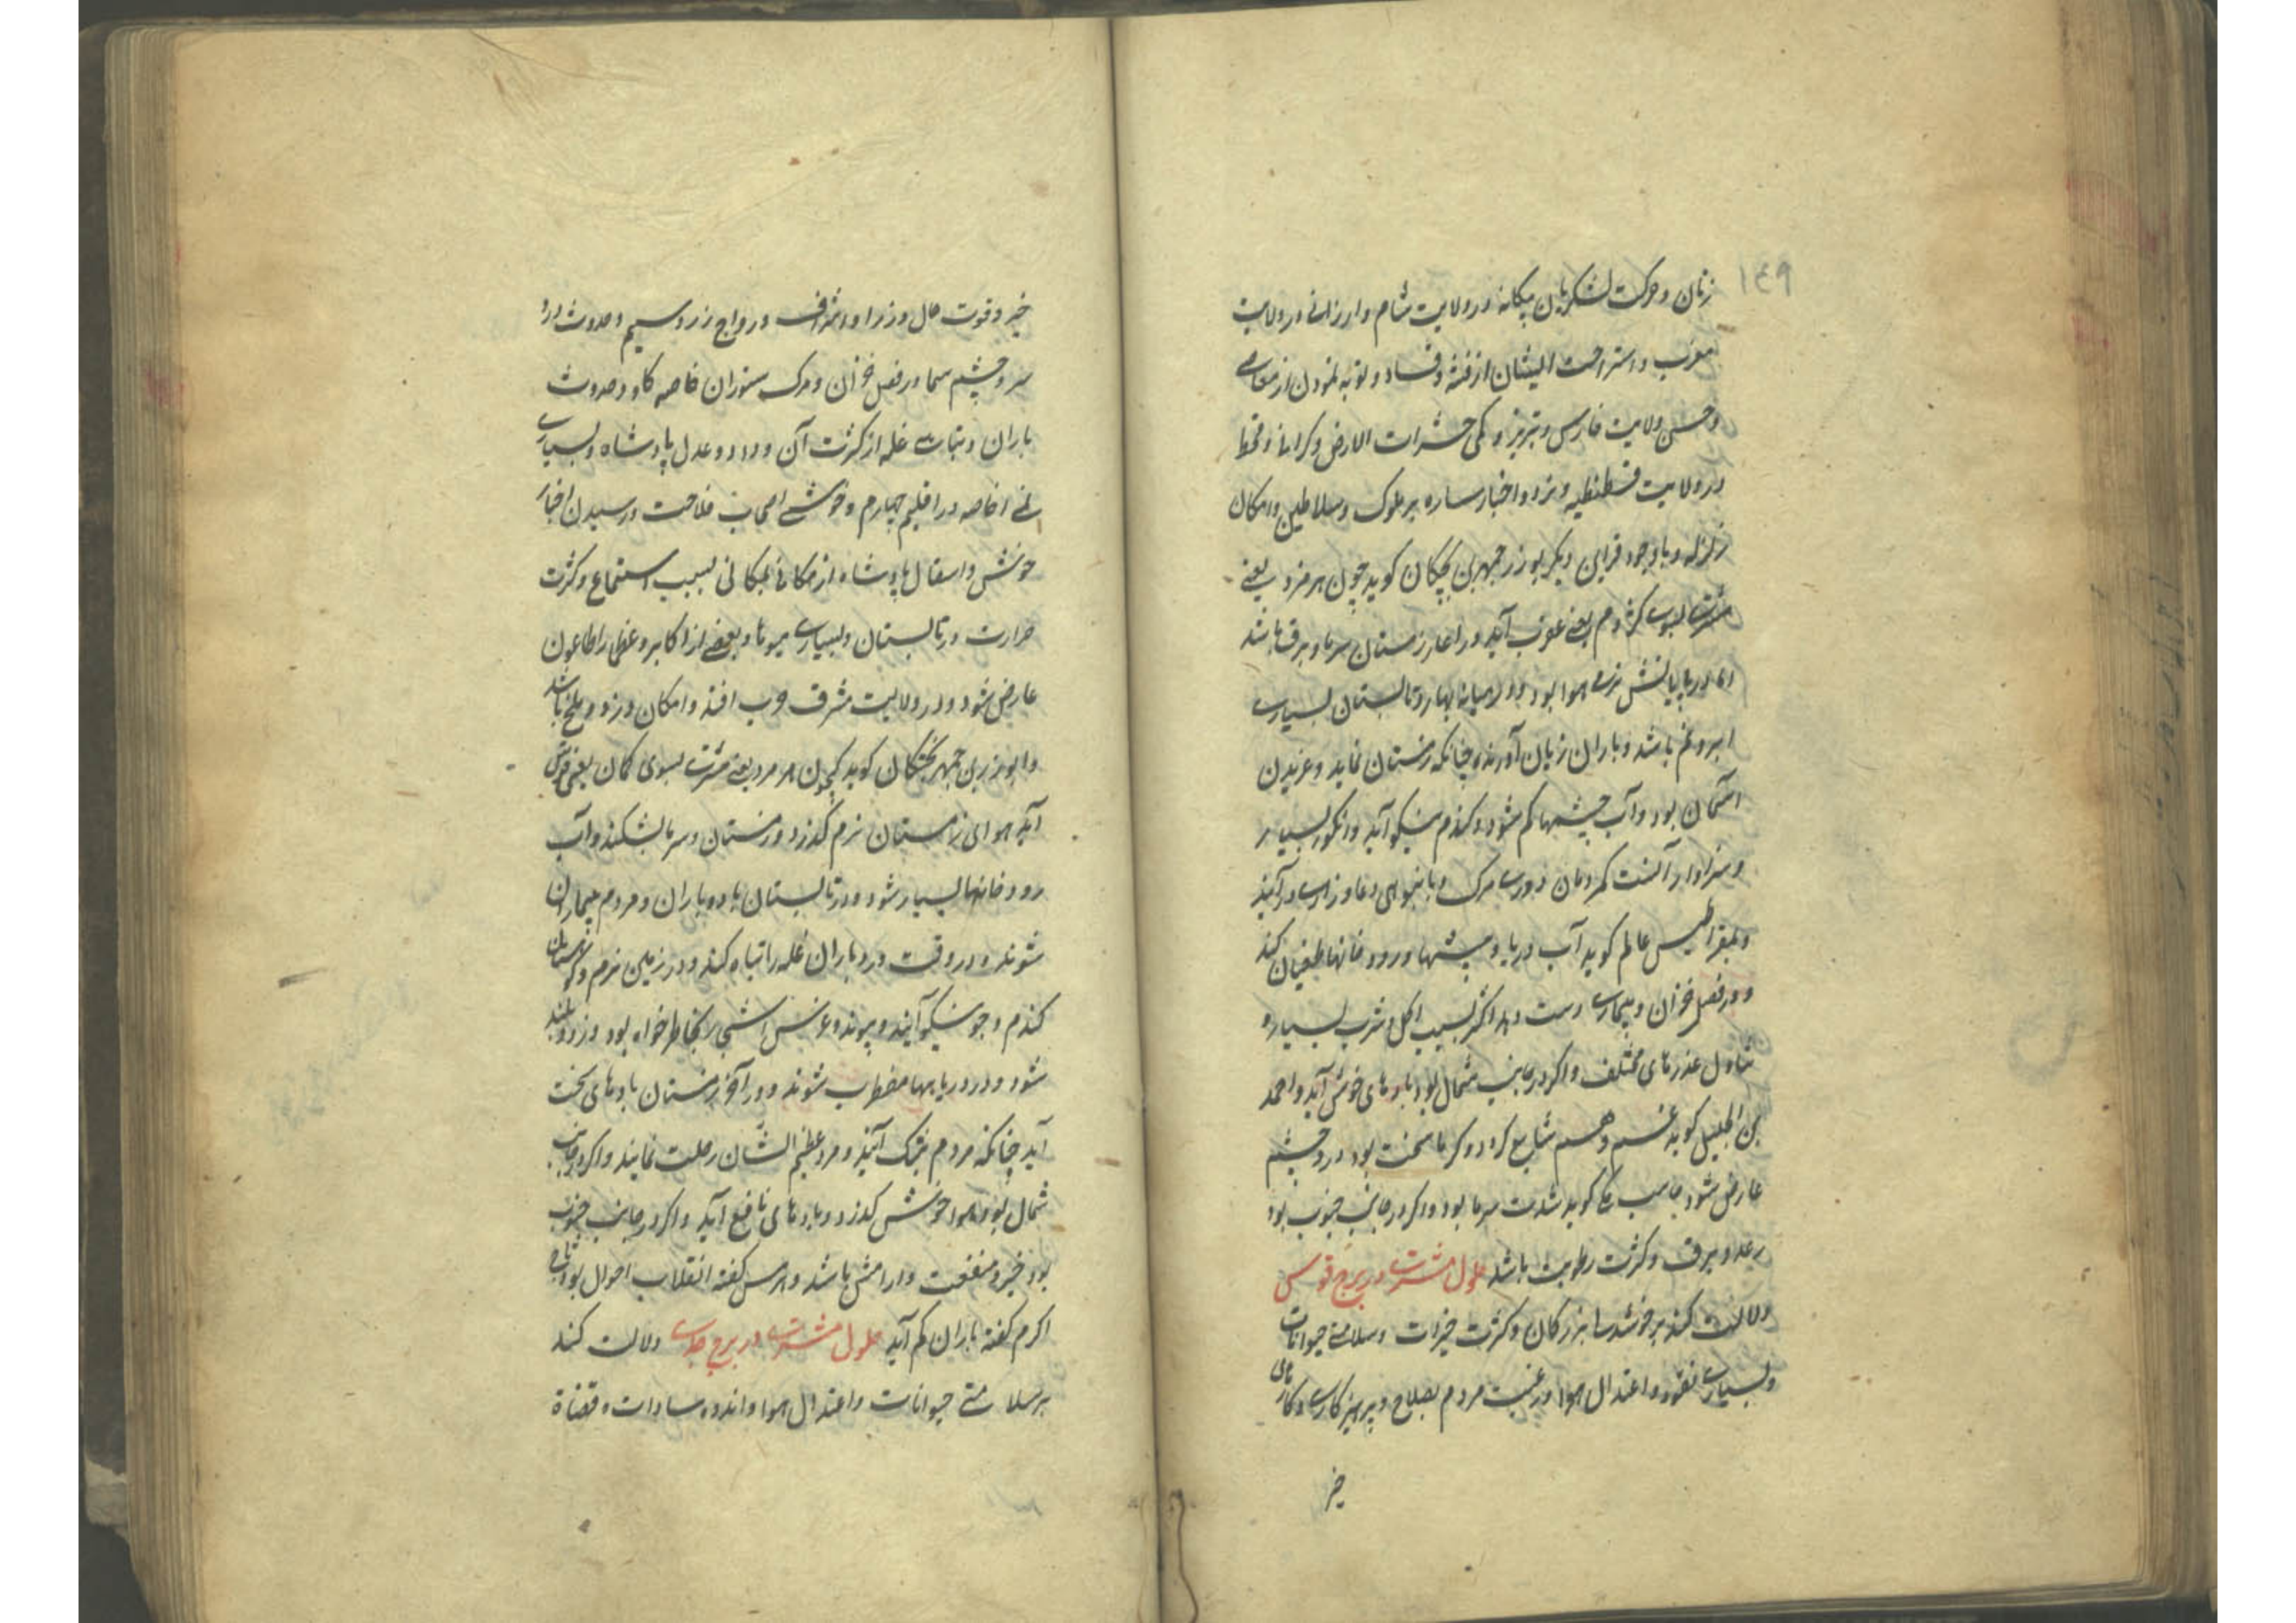 ۱٤۹
زنان و حرکت لشکریان بیکانه در ولایت شام و ارزانی در ولایت
مغرب و استراحت ایشان از فتنه و فساد و توبه نمودن از معاصی
و حسن ولایت فارس و تبریز و کمی حشرات الارض و کرانی و قحط
در ولایت قسطنطیه و نزد و اخبار ساره بر ملوک و سلاطین و امکان
زلزله و با وجود قراین دیکر بوزرجمهر بن بختکان کوید چون هرمزد یعنی
مشتری بسوی کژدم یعنی عقرب آید در اغاز زمستان سرما و برف باشد
اما در پایانش نرمی هوا بود و در میانه بهار و تابستان بسیاری
ابر و نم باشد و باران زیان آورنده چنانکه زمستان نماید و غریدن
آسمان بود و آب چشمها کم شود و کندم نیکو آید و انکور بسیار
و سزاوار آنست که مردمان از دوری مرک و بانبوهی دعا و زاری درآیند
و بقراطیس عالم کوید آب دریا و چشمها و رودخانها طغیان کند
و در فصل خزان و بیماری دست دهد اکثر بسبب اکل و شرب بسیار و
تناول غذرهای مختلف و اکر در جانب شمال بود بادهای خوش آید و احمد
بن الجلیل کوید غم و هم شایع کردد و کرما سخت بود درد چشم
عارض شود جاسب حکیم کوید شدت سرما بود و اکر در جانب جنوب بود
رعد و برق و کثرت رطوبت باشد حلول مشتری در برج قوس
دلالت کند بر خوشدلی بزرکان و کثرت خیرات و سلامتی حیوانات
و بسیاری نقود و اعتدال هوا و رغبت مردم بصلاح و پرهیزکاری و کارهای
خیر
خیر و قوت حال وزرا و اشراف و رواج زر و سیم و حدوث درد
سر و چشم سیما در فصل خزان و مرک ستوران خاصه کاو و حدوث
باران و تباهی غله از کثرت آن و داد و عدل پادشاه و بسیاری
خاصه در اقلیم چهارم و خوشی اصحاب فلاحت و رسیدن اخبار
خوش و اسقال پادشاه از مکانی بمکانی بسبب استماع و کثرت
حرارت در تابستان و بسیاری میوها و بعضی از اکابر و عظما را طاعون
عارض شود و در ولایت مشرق حرب افتد و امکان دزد و ملخ باشد
و ابوزربن جمهر بختکان کوید که چون هرمزد یعنی مشتری بسوی کمان یعنی قوس
آید هوای زمستان نرم کذرد و زمستان و سرما بشکند و آب
رودخانها بسیار شود و در تابستان باد و باران و مردم بیماران
شوند و در وقت درد باران غله را تباه کند و در زمین نرم و کوهستان
کندم و جو نیکو آیند و پیوند و غرس اشجار بخاطر خواه بود و زود بلند
شود و در دریابها مضطرب شوند و در آخر زمستان بادهای سخت
آید چنانکه مردم بتنک آیند و مرد عظیم الشان رحلت نمایند و اکر در جانب
شمال بود هوا خوش کذرد و بادهای نافع آید و اکر در جانب جنوب
بود خیر و منفعت و آرامش باشد و هرمس کفته انقلاب احوال بود
اکرم کفته باران کم آید حلول مشتری در برج جدی دلالت کند
بر سلامتی حیوانات و اعتدال هوا و اندوه سادات و قضاة